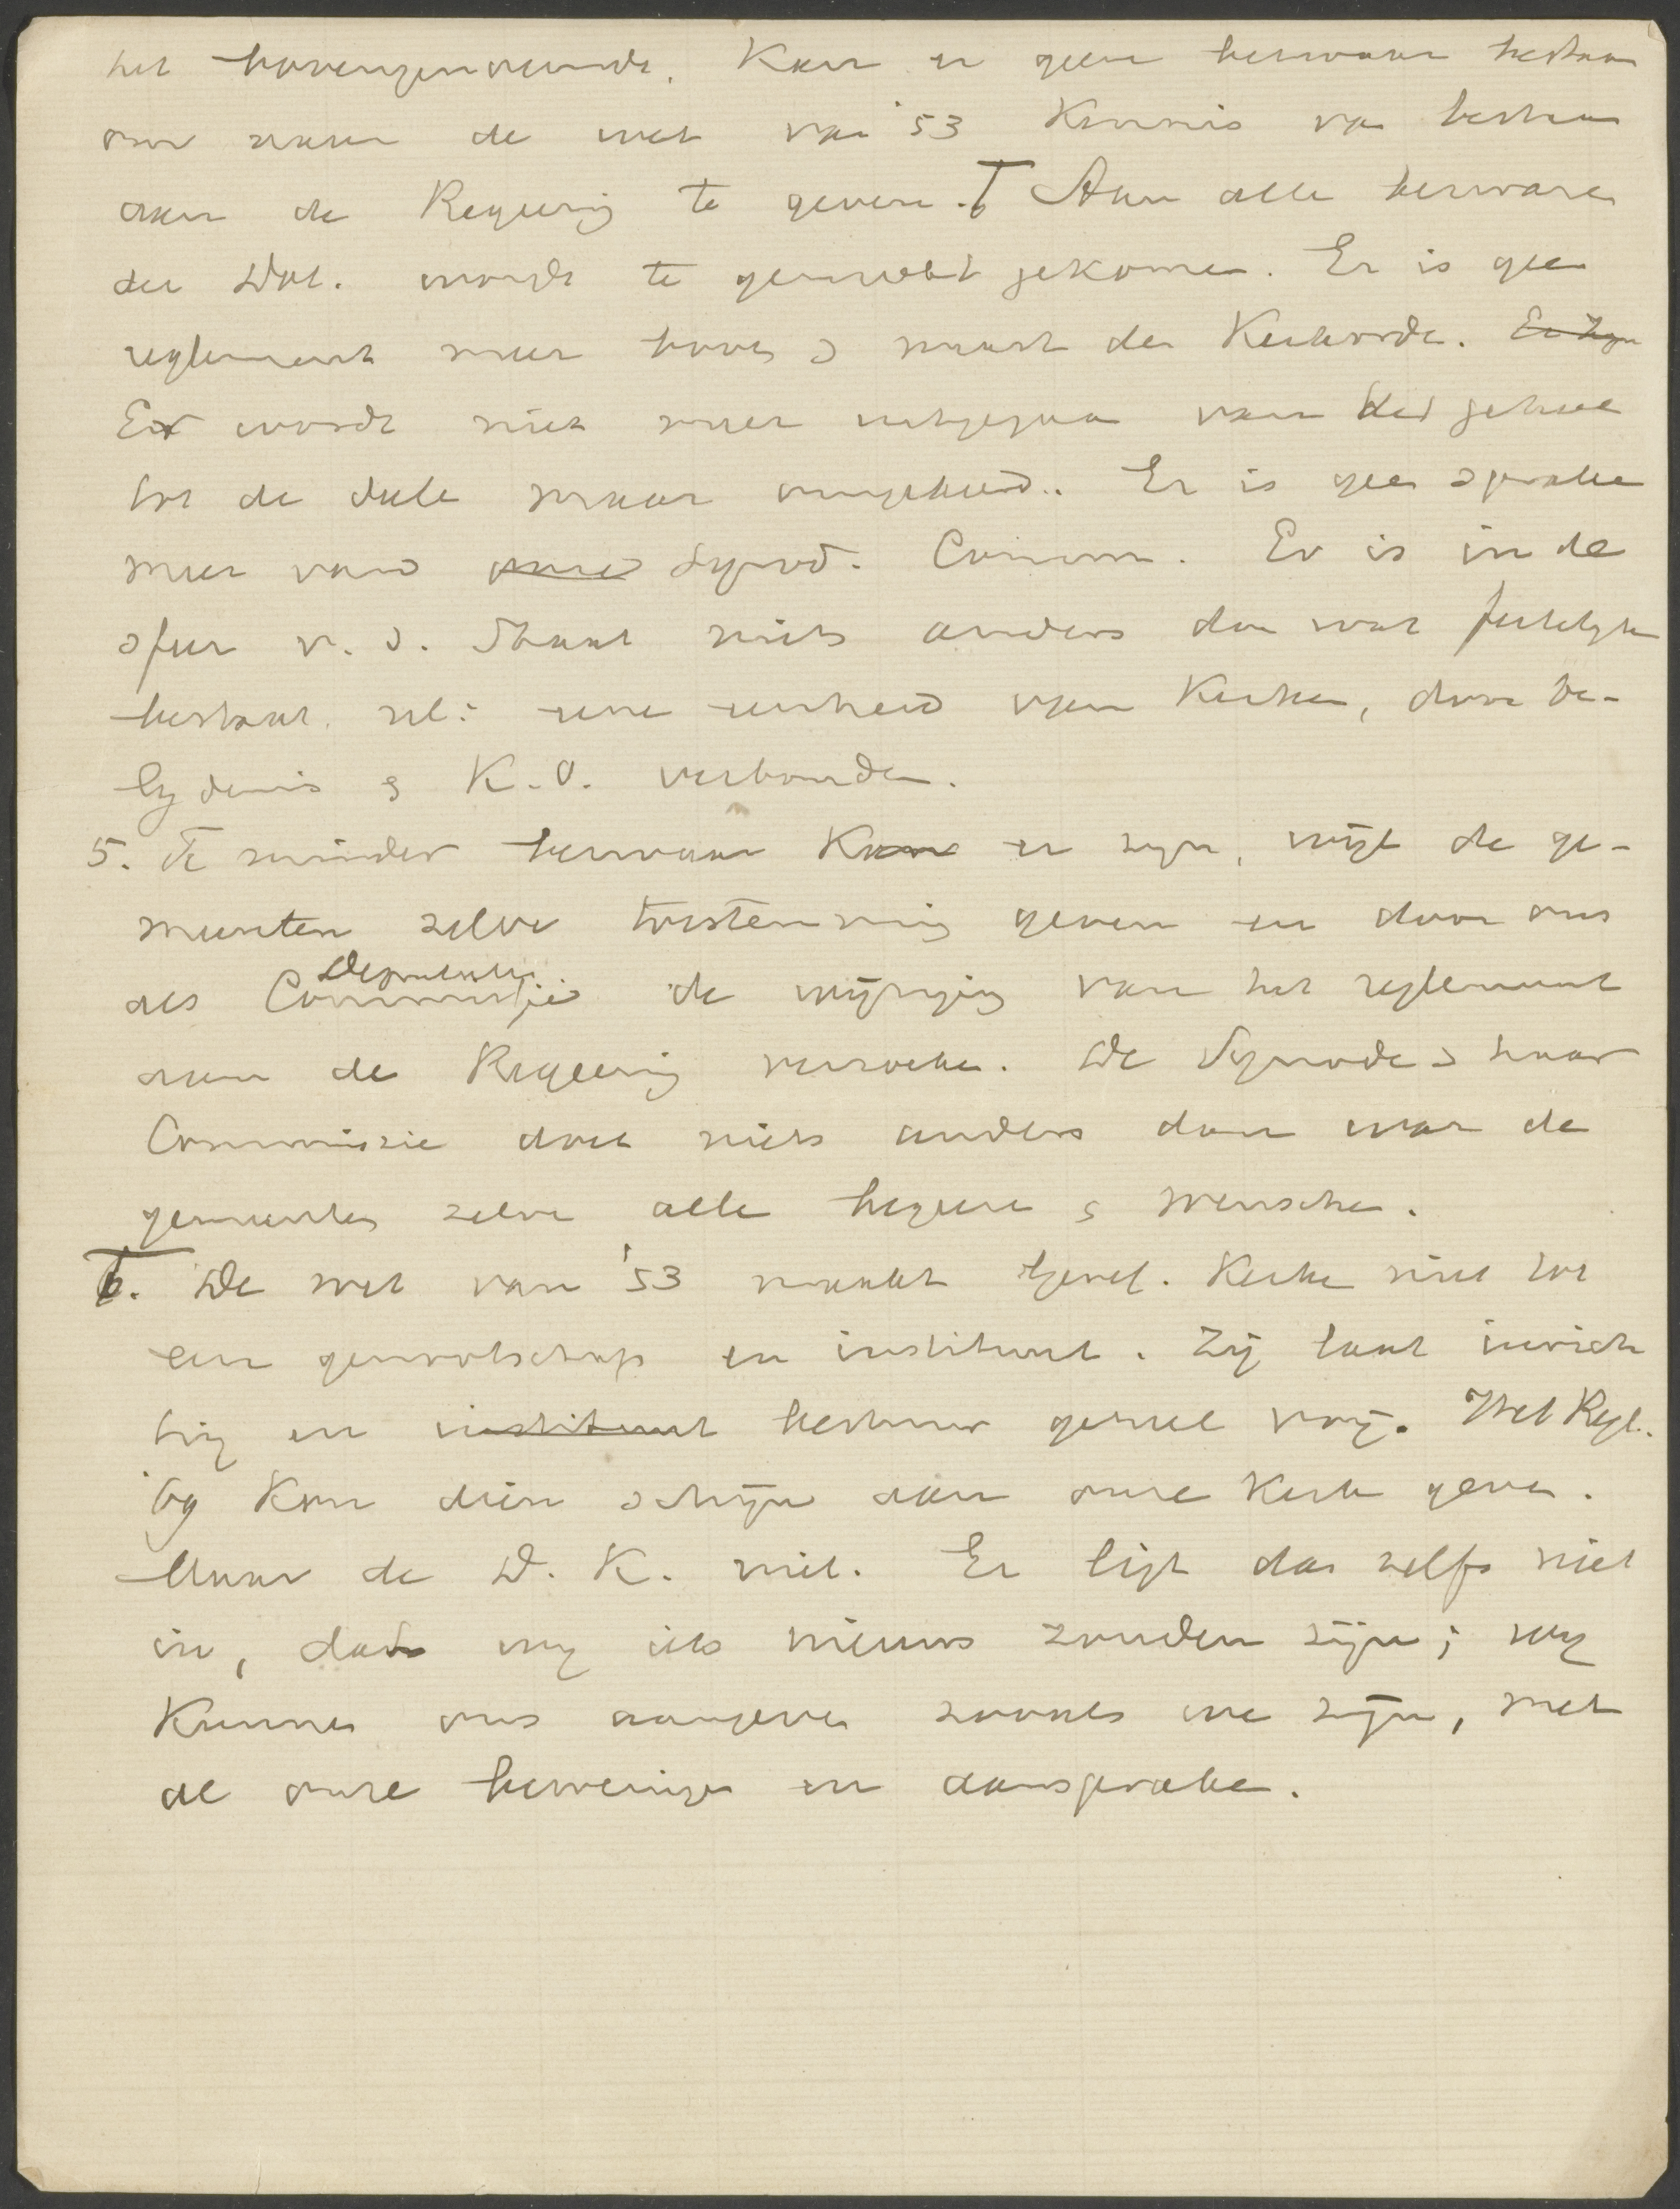 het bovengenoemde. Kan er geen bezwaar bestaan
om naar de wet van '53 Kennis van bestaan
aan de Regeering te geven. Aan alle bezwaren
der Dol. wordt te gemoet gekomen. Er is geen
reglement meer boven & naast de Kerkorde. Er zijn
Er wordt niet meer uitgegaan van het geheel
tot de deele maar omgekeerd. Er is geen sprake
meer van onze Synod. Comm. Er is in de
sfeer v. d. Staat niets anders dan wat feitelijk
bestaat. nl: eene eenheid van Kerken, door be-
lydenis & K.O. verbonden.
5. Te minder bezwaar Kan er zijn, wijl de ge-
meenten zelve toestemming geven en door ons
Deputatie
als Commissie de wijziging van het reglement
aan de Regeering verzoeken. De Synode & haar
Commissie doet niets anders dan wat de
gemeenten zelve alle begeeren & wenschen.
6. De wet van '53 maakt Geref. Kerken niet tot
een genootschap en instituut. Zij laat inrich
ting en instituut bestuur geheel vrij. Het Regl.
'69 Kon dien schijn aan onze Kerk geven.
Maar de D. K. niet. Er ligt das zelfs niet
in, dat wij iets nieuws zouden zijn; wij
Kunnen ons aangeven zooals we zijn, met
al onze beweringen en aanspraken.